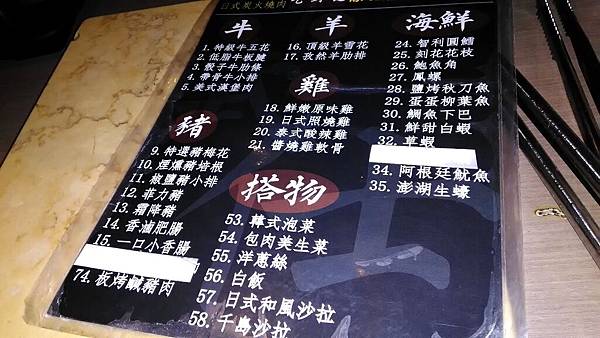 日式炭火燒肉
牛
1. 特級牛五花
2. 低脂牛板腱
3. 骰子牛肋條
4. 帶骨牛小排
5. 美式漢堡肉
豬
9. 特選豬梅花
10. 煙燻豬培根
11. 椒鹽豬小排
12. 菲力豬
13. 霜降豬
14. 香滷肥腸
15. 一口小香腸
74. 板烤鹹豬肉
羊
16. 頂級羊雪花
17. 孜然羊肋排
雞
18. 鮮嫩原味雞
19. 日式照燒雞
20. 泰式酸辣雞
21. 醬燒雞軟骨
搭物
53. 韓式泡菜
54. 包肉美生菜
55. 洋蔥絲
56. 白飯
57. 日式和風沙拉
58. 千島沙拉
海鮮
24. 智利圓鱈
25. 刻花花枝
26. 鮑魚角
27. 鳳螺
28. 鹽烤秋刀魚
29. 蛋蛋柳葉魚
30. 鯛魚下巴
31. 鮮甜白蝦
32. 草蝦
34. 阿根廷魷魚
35. 澎湖生蠔